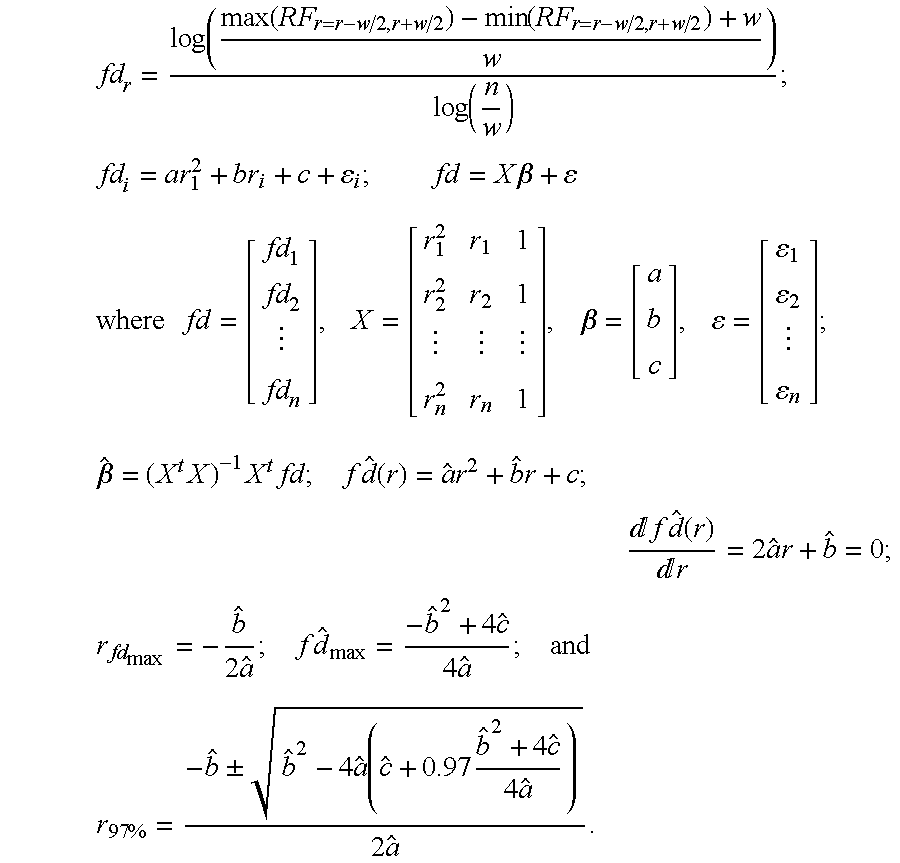 $fd_r = \dfrac{\log\left(\dfrac{\max(RF_{r=r-w/2,r+w/2}) - \min(RF_{r=r-w/2,r+w/2}) + w}{w}\right)}{\log\left(\dfrac{n}{w}\right)};$
$fd_i = ar_1^2 + br_i + c + \varepsilon_i; \quad fd = X\boldsymbol{\beta} + \varepsilon$
where $fd = \begin{bmatrix} fd_1 \\ fd_2 \\ \vdots \\ fd_n \end{bmatrix}, \quad X = \begin{bmatrix} r_1^2 & r_1 & 1 \\ r_2^2 & r_2 & 1 \\ \vdots & \vdots & \vdots \\ r_n^2 & r_n & 1 \end{bmatrix}, \quad \boldsymbol{\beta} = \begin{bmatrix} a \\ b \\ c \end{bmatrix}, \quad \varepsilon = \begin{bmatrix} \varepsilon_1 \\ \varepsilon_2 \\ \vdots \\ \varepsilon_n \end{bmatrix};$
$\hat{\boldsymbol{\beta}} = (X^t X)^{-1} X^t fd; \quad f\hat{d}(r) = \hat{a}r^2 + \hat{b}r + c;$
$\dfrac{d\!\!l f\hat{d}(r)}{d\!\!l r} = 2\hat{a}r + \hat{b} = 0;$
$r_{fd_{\max}} = -\dfrac{\hat{b}}{2\hat{a}}; \quad f\hat{d}_{\max} = \dfrac{-\hat{b}^2 + 4\hat{c}}{4\hat{a}}; \quad \text{and}$
$r_{97\%} = \dfrac{-\hat{b} \pm \sqrt{\hat{b}^2 - 4\hat{a}\left(\hat{c} + 0.97\dfrac{\hat{b}^2 + 4\hat{c}}{4\hat{a}}\right)}}{2\hat{a}}.$